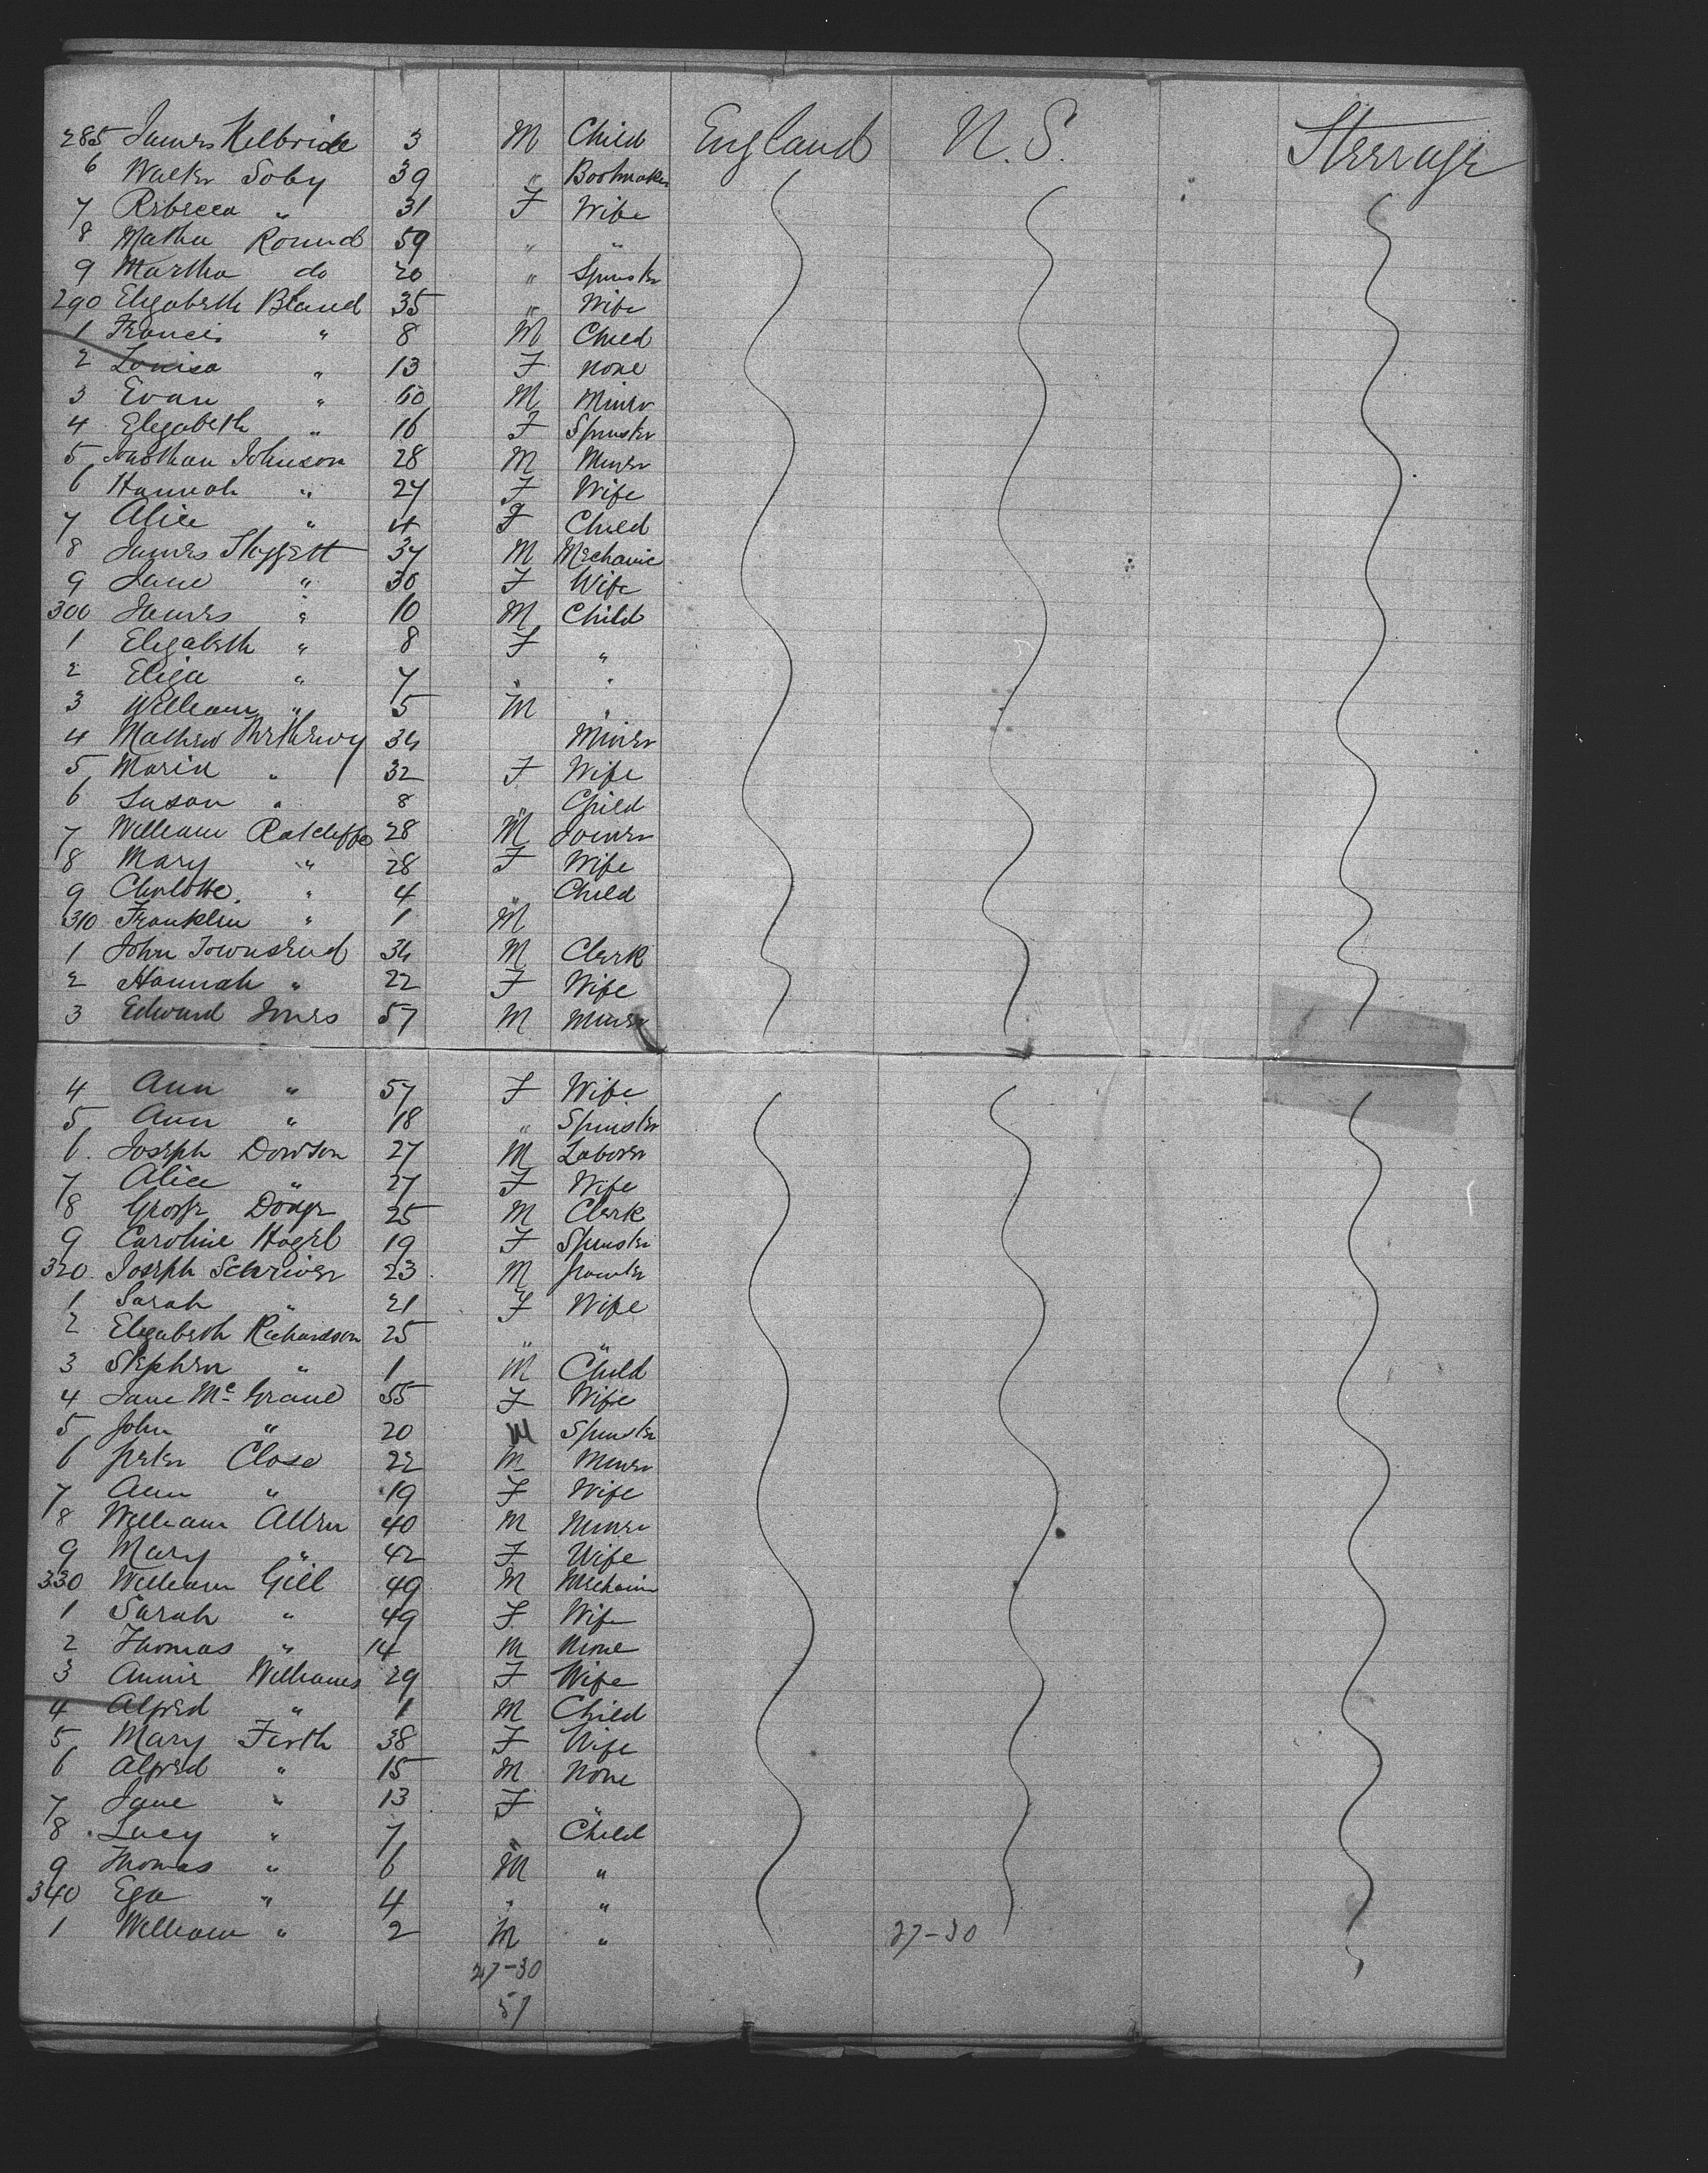 285 James Kelbride 3 M Child England N. S. Steerage
6 Walter Soby 39 " Bootmaker
7 Rebecca " 31 F Wife
8 Matha Round 59 " "
9 Martha do 20 " Spinster
290 Elizabeth Bland 35 " Wife
1 Francis " 8 M Child
2 Louisa " 13 F none
3 Evan " 60 M Miner
4 Elizabeth " 16 F Spinster
5 Jonathan Johnson 28 M Miner
6 Hannah " 27 F Wife
7 Alice " 4 F Child
8 James 37 M Mechanic
9 Jane " 30 F Wife
300 James " 10 M Child
1 Elizabeth " 8 F "
2 Eliza " 7 " "
3 William " 5 M "
4 Mathew 34 Miner
5 Maria " 32 F Wife
6 Susan " 8 " Child
7 William Ratcliffe 28 M Joiner
8 Mary " 28 F Wife
9 Charlotte " 4 " Child
310 Franklin " 1 M
1 John Townsend 34 M Clerk
2 Hannah " 22 F Wife
3 Edward Jones 57 M Miner
4 Ann " 57 F Wife
5 Ann " 18 " Spinster
6. Joseph Dowson 27 M Laborer
7 Alice " 27 F Wife
8 George 25 M Clerk
9 Caroline 19 F Spinster
320. Joseph Schriver 23 M
1 Sarah " 21 F Wife
2 Elizabeth Richardson 25 " "
3 Stephen " 1 M Child
4 Jane Mc Grane 55 F Wife
5 John " 20 M Spinster
6 Peter Close 22 M Miner
7 Ann " 19 F Wife
8 William Allen 40 M Miner
9 Mary " 42 F Wife
330 William Gill 49 M Mechanic
1 Sarah " 49 F Wife
2 Thomas " 14 M None
3 Annie Williams 29 F Wife
4 Alfred " 1 M Child
5 Mary Firth 38 F Wife
6 Alfred " 15 M None
7 Jane " 13 F "
8 Lucy " 7 " Child
9 Thomas " 6 M "
340 " 4 " "
1 William " 2 M " 27-30
27-30
57